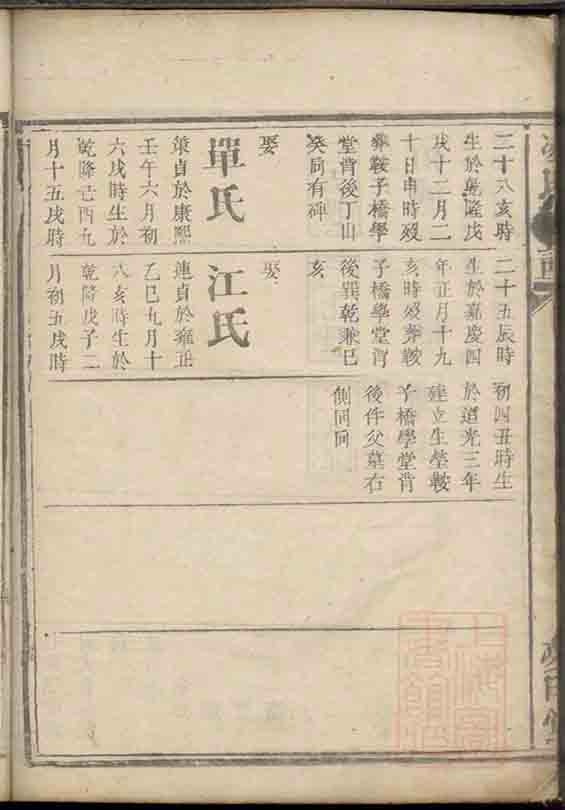 二十八亥時
生於乾隆戊
戌十二月二
十日申時歿
葬鞍子橋學
堂背後丁山
癸同有碑
娶
單氏
策貞於康熙
壬午六月初
六戌時生於
乾隆己酉九
月十五戌時
二十五辰時
生於嘉慶四
年正月十九
亥時歿葬鞍
子橋學堂背
後巽乾兼巳
亥
娶
江氏
連貞於雍正
乙巳九月十
八亥時生於
乾隆戊子二
月初五戌時
初四丑時生
於道光三年
建立生塋鞍
子橋學堂背
後伴父墓右
側同向